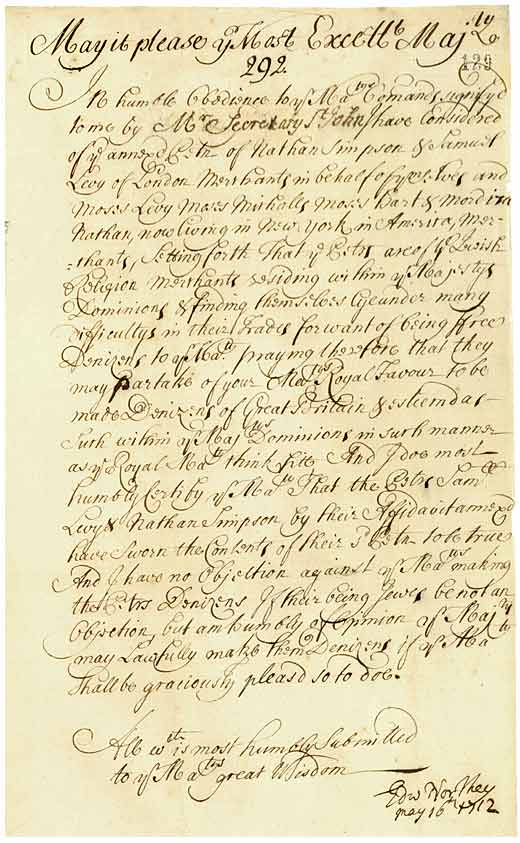 May it please yͤ Most Excellᵗ Majᵗʸ
292. 129
In humble Obedience to yͬ Maᵗⁱᵉˢ Comands signifyd
to me by Mʳ Secretary Sᵗ John, I have Considered
of yͤ annexed Petn of Nathan Simpson & Samuel
Levy of London Merchants in behalfe of yᵐselves and
Moses Levy Moses Michalls Moses Hart & Mordica
Nathan, now living in New York in America, Mer-
-chants, Setting forth That yͤ Petrs are of yͤ Jewish
Religion Merchants residing within yͬ Majestys
Dominions & finding themselves lye under many
difficultys in their Trades for want of being ffree
Denizens to yͬ Maᵗʸ praying therefore that they
may partake of your Maᵗʸˢ Royal Favour to be
made Denizens of Great Britain & esteemd as
Such within yͬ Majᵗʸˢ Dominions in such manner
as yͬ Royal Maᵗʸ think fitt And I doe most
humbly Certify yͬ Maᵗʸ That the Petrs Samˡˡ
Levy & Nathan Simpson by their Affidavit annexd
have Sworn the Contents of their Petn to be true
And I have no Objection against yͬ Maᵗʸˢ making
the Petrs Denizens If their being Jewes be not an
Objection, but am humbly of Opinion yͬ Majᵗʸ
may Lawfully make them Denizens if yͬ Maᵗʸ
Shall be graciously pleasd so to doe.
All wᶜʰ is most humbly Submitted
to yͬ Maᵗʸˢ great Wisdom
Edw Northey
may 16ᵗʰ 1712